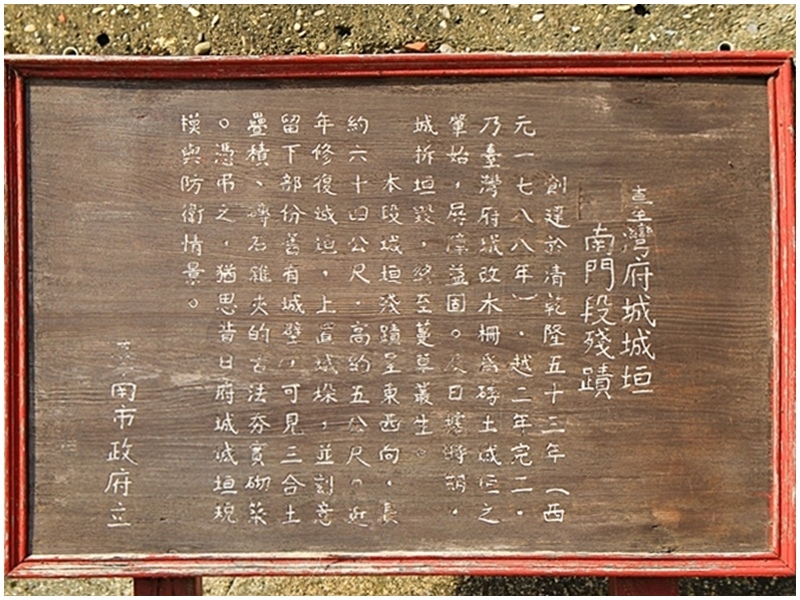 臺灣府城城垣
南門段殘蹟
創建於清乾隆五十三年（西
元一七八八年），越二年完工。
乃臺灣府城改木柵為磚土城垣之
肇始，屢淳益固。後日據時期，
城拆垣毀，終至蔓草叢生。
本段城垣殘蹟呈東西向，長
約六十四公尺，高約五公尺。近
年修復城垣，上置城垛，並刻意
留下部份舊有城壁，可見三合土
疊積、磚石雜夾的古法夯實砌築
。憑弔之，猶思昔日府城城垣規
模與防衛情景。
臺南市政府立